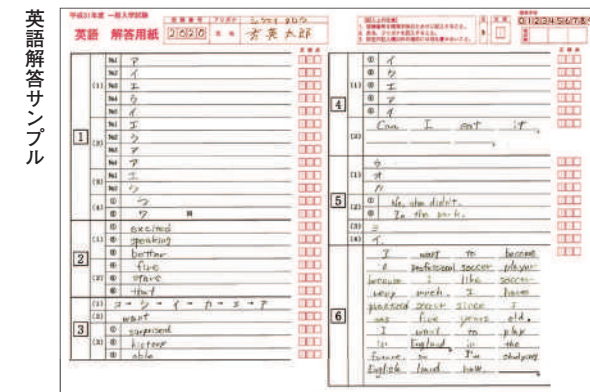 英語解答サンプル
平成31年度 一般入学試験
英語 解答用紙
受験番号
2020
フリガナ
氏名
英太郎
0123456789
1
(1)
№1 ア
№2 イ
№3 エ
№4 ウ
№5 イ
(2)
№1 エ
№2 ウ
№3 ア
№4 ア
(3)
№1 エ
№2 ウ
(4)
① ウ
② ワ
2
(1)
① excited
② speaking
③ better
④ five
(2)
① stars
② that
3
(1) オ→ウ→イ→カ→エ→ア
(2) want
(3)
① surprised
② history
③ able
4
(1)
① イ
② ウ
③ エ
④ ア
⑤ イ
(2) Can I eat it
5
(1)
ウ
オ
カ
(2)
① No, she didn't.
② In the park.
(3) ミ
(4) イ
6
I want to become
a professional soccer player
because I like soccer
very much. I have
practiced soccer since I
was five years old.
I want to play
in England in the
future, so I'm studying
English hard now.